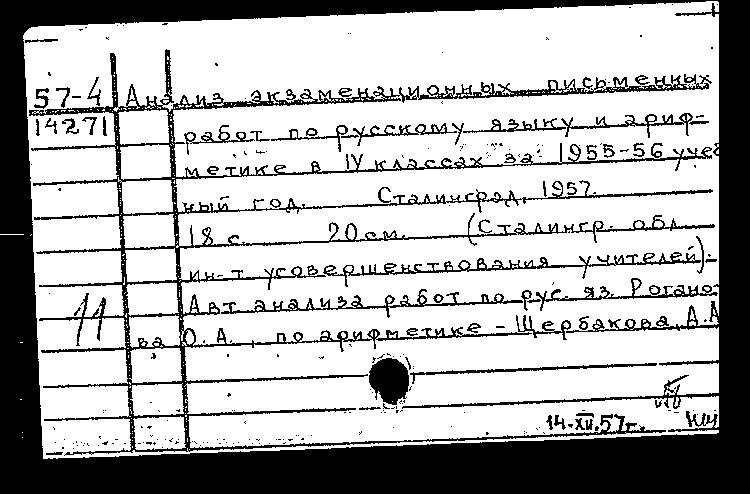 57-4 Анализ экзаменационных письменных
14271 работ по русскому языку и ариф-
метике в IV классах за 1955-56 учеб
ный год. Сталинград, 1957.
18 с. 20 см. (Сталингр. обл.
ин-т усовершенствования учителей).
11 Авт анализа работ по рус. яз. Рогано-
ва О.А., по арифметике - Щербакова, А.А
14-XII.57г.